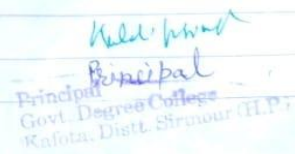 Principal
Principal
Govt. Degree College
Kafota, Distt. Sirmour (H.P.)